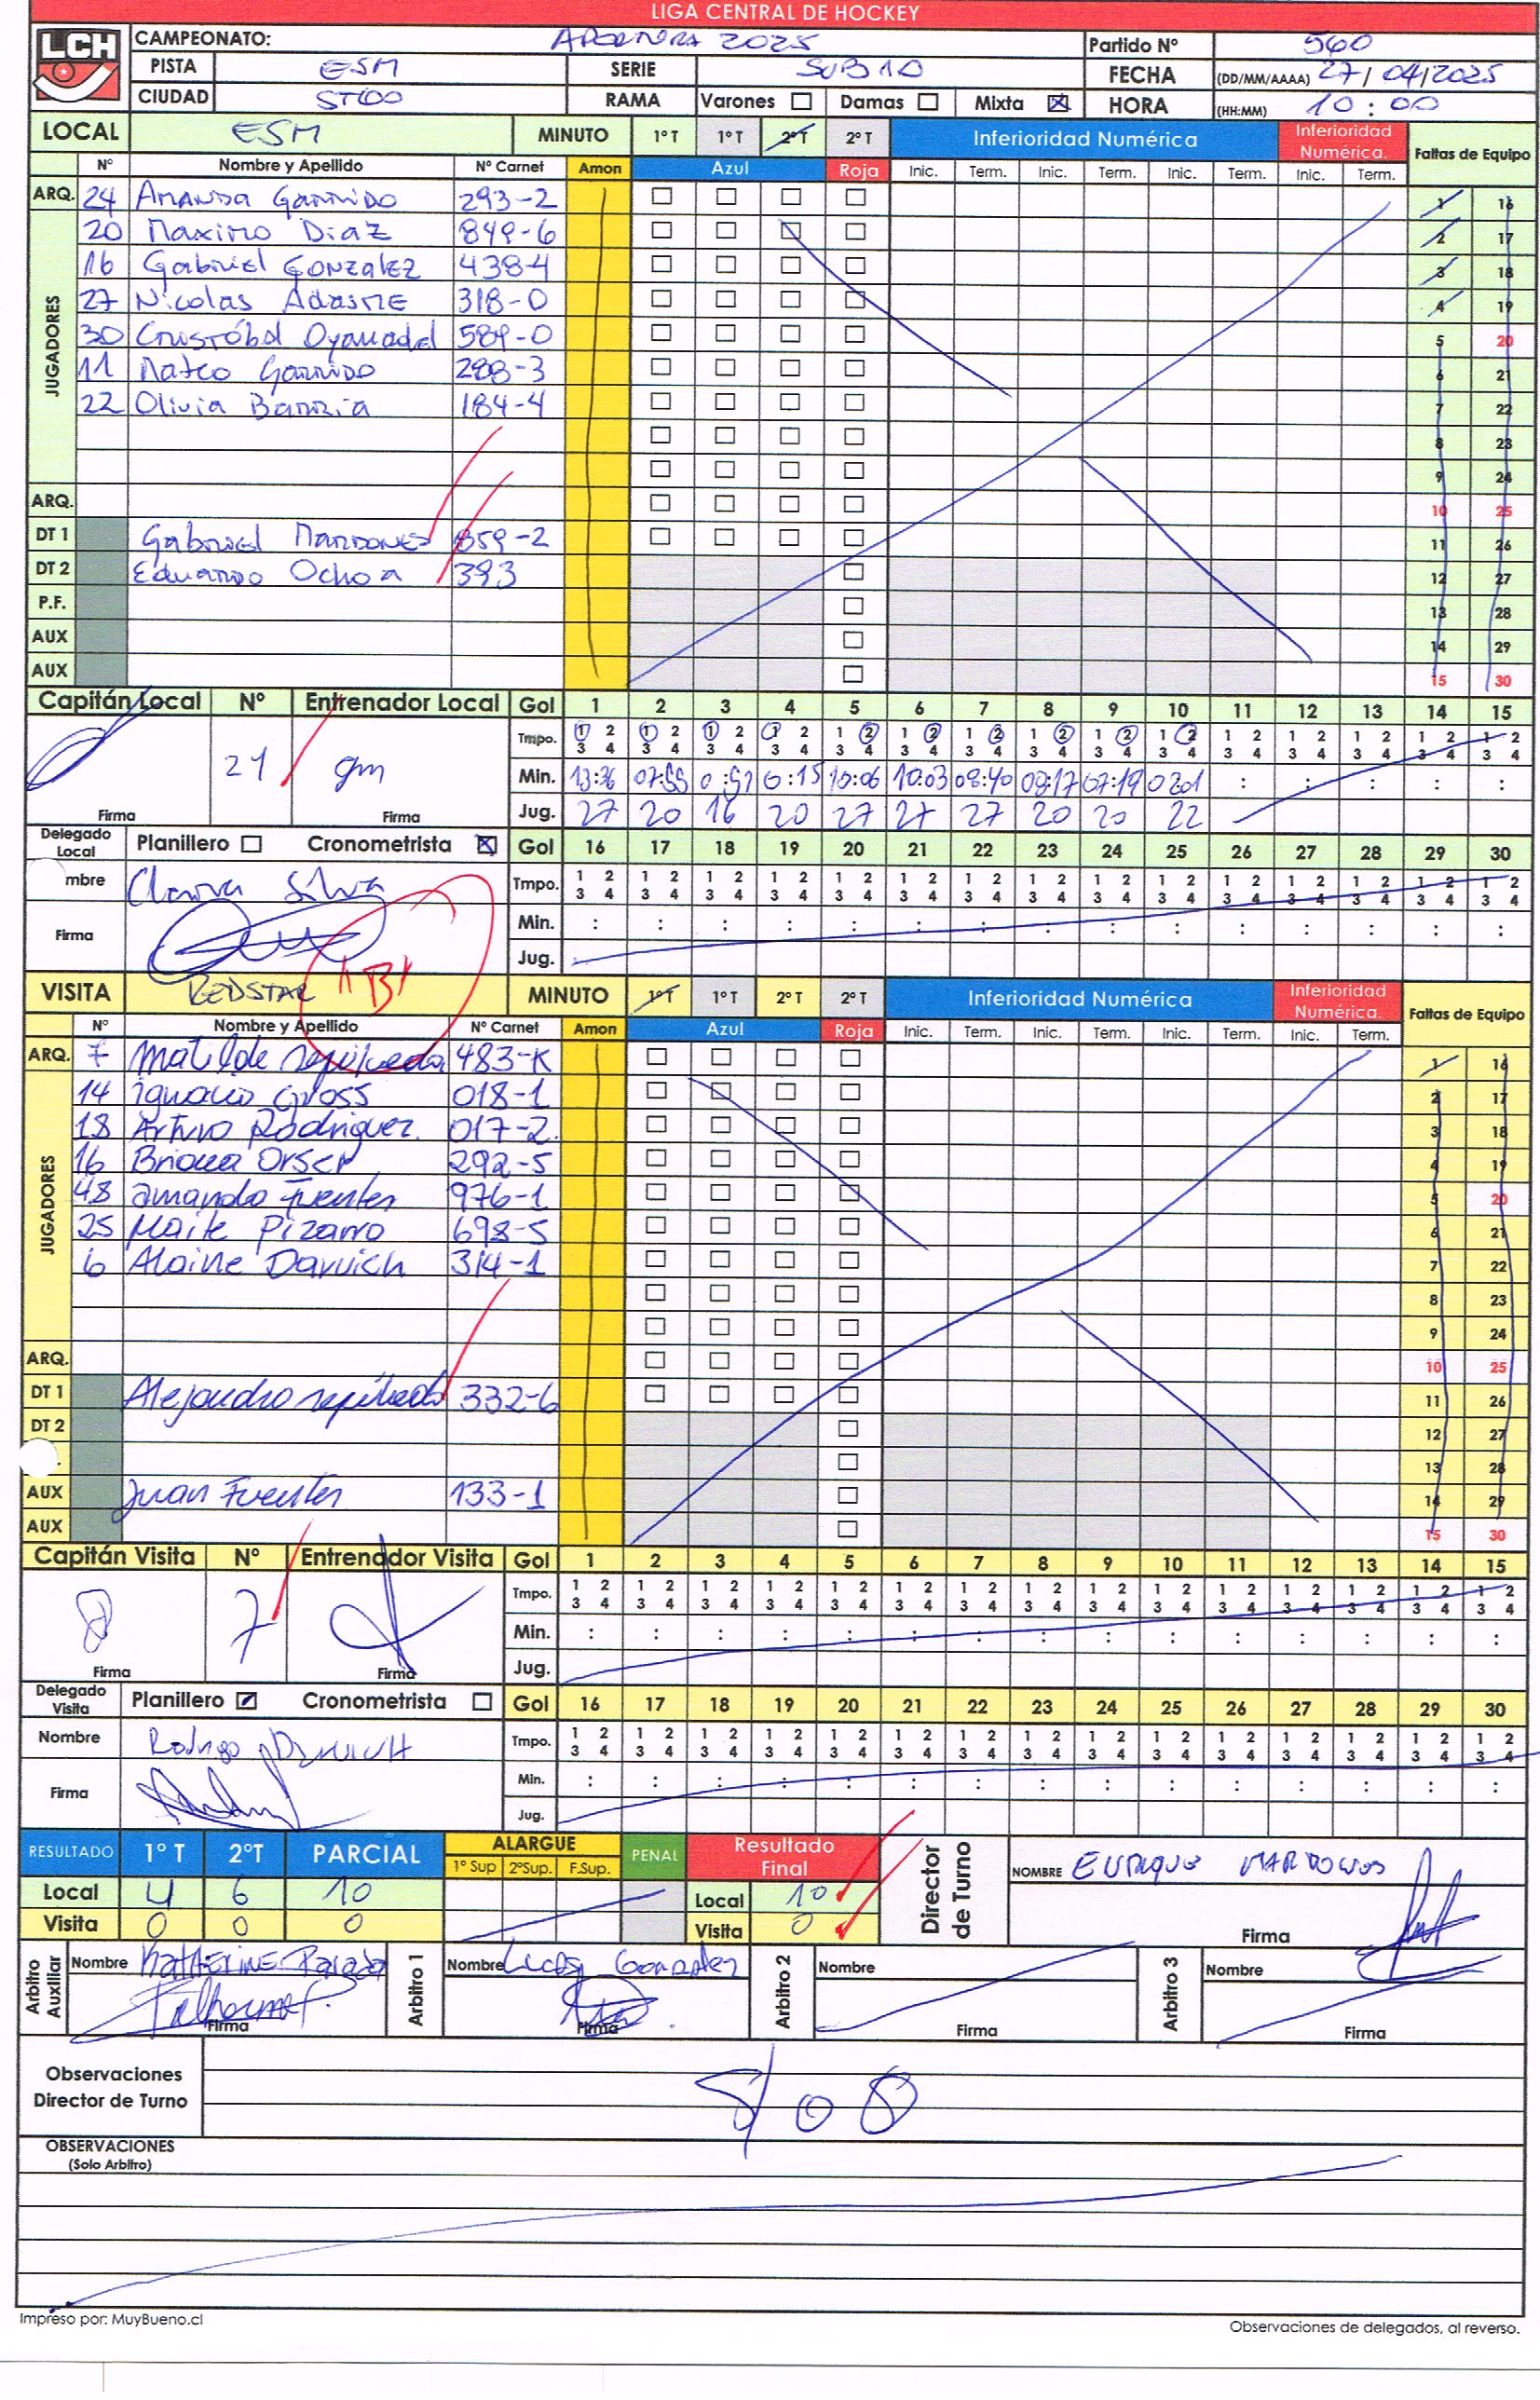 LIGA CENTRAL DE HOCKEY
LCH
CAMPEONATO: APERTURA 2025 Partido Nº 560
PISTA ESM SERIE SUB 10 FECHA (DD/MM/AAAA) 27/04/2025
CIUDAD STGO RAMA Varones Damas Mixta HORA (HH:MM) 10:00
LOCAL ESM MINUTO 1º T 1º T 2º T 2º T Inferioridad Numérica Inferioridad Numérica. Faltas de Equipo
Nº Nombre y Apellido Nº Carnet Amon Azul Roja Inic. Term. Inic. Term. Inic. Term. Inic. Term.
ARQ. 24 Amanda Garrido 293-2 1 16
JUGADORES
20 Maximo Diaz 849-6 2 17
16 Gabriel Gonzalez 438-4 3 18
27 Nicolas Adasme 318-0 4 19
30 Cristóbal Oyanadel 589-0 5 20
11 Mateo Garrido 288-3 6 21
22 Olivia Barria 184-4 7 22
8 23
9 24
ARQ. 10 25
DT 1 Gabriel Mardones 859-2 11 26
DT 2 Eduardo Ochoa 393 12 27
P.F. 13 28
AUX 14 29
AUX 15 30
Capitán Local Nº Entrenador Local Gol 1 2 3 4 5 6 7 8 9 10 11 12 13 14 15
Tmpo. 1 2 1 2 1 2 1 2 1 2 1 2 1 2 1 2 1 2 1 2 1 2 1 2 1 2 1 2 1 2
3 4 3 4 3 4 3 4 3 4 3 4 3 4 3 4 3 4 3 4 3 4 3 4 3 4 3 4 3 4
21 gm Min. 13:36 07:55 0:51 0:15 10:06 10:03 08:40 08:17 07:19 0201 : : : : :
Firma Firma Jug. 27 20 16 20 27 27 27 20 20 22
Delegado Local Planillero Cronometrista Gol 16 17 18 19 20 21 22 23 24 25 26 27 28 29 30
mbre Silva Tmpo. 1 2 1 2 1 2 1 2 1 2 1 2 1 2 1 2 1 2 1 2 1 2 1 2 1 2 1 2 1 2
3 4 3 4 3 4 3 4 3 4 3 4 3 4 3 4 3 4 3 4 3 4 3 4 3 4 3 4 3 4
Firma Min. : : : : : : : : : : : : : : :
Jug.
VISITA REDSTAR "B" MINUTO 1º T 1º T 2º T 2º T Inferioridad Numérica Inferioridad Numérica. Faltas de Equipo
Nº Nombre y Apellido Nº Carnet Amon Azul Roja Inic. Term. Inic. Term. Inic. Term. Inic. Term.
ARQ. 7 Matilde sepúlveda 483-K 1 16
JUGADORES
14 ignacio Gross 018-1 2 17
18 Arturo Rodriguez. 017-2 3 18
16 Orser 292-5 4 19
48 amanda fuentes 976-1 5 20
25 Maite Pizarro 698-5 6 21
6 Alaine Darwich 314-1 7 22
8 23
9 24
ARQ. 10 25
DT 1 Alejandro sepúlveda 332-6 11 26
DT 2 12 27
13 28
AUX Juan Fuentes 133-1 14 29
AUX 15 30
Capitán Visita Nº Entrenador Visita Gol 1 2 3 4 5 6 7 8 9 10 11 12 13 14 15
Tmpo. 1 2 1 2 1 2 1 2 1 2 1 2 1 2 1 2 1 2 1 2 1 2 1 2 1 2 1 2 1 2
3 4 3 4 3 4 3 4 3 4 3 4 3 4 3 4 3 4 3 4 3 4 3 4 3 4 3 4 3 4
7 Min. : : : : : : : : : : : : : : :
Firma Firma Jug.
Delegado Visita Planillero Cronometrista Gol 16 17 18 19 20 21 22 23 24 25 26 27 28 29 30
Nombre Rodrigo Darwich Tmpo. 1 2 1 2 1 2 1 2 1 2 1 2 1 2 1 2 1 2 1 2 1 2 1 2 1 2 1 2 1 2
3 4 3 4 3 4 3 4 3 4 3 4 3 4 3 4 3 4 3 4 3 4 3 4 3 4 3 4 3 4
Firma Min. : : : : : : : : : : : : : : :
Jug.
RESULTADO 1º T 2ºT PARCIAL ALARGUE PENAL Resultado Final Director de Turno NOMBRE
1º Sup 2ºSup. F.Sup.
Local 4 6 10 Local 10
Visita 0 0 0 Visita 0 Firma
Arbitro Auxiliar Nombre Katherine Parada Arbitro 1 Nombre Lucas Gonzalez Arbitro 2 Nombre Arbitro 3 Nombre
Firma Firma Firma Firma
Observaciones
Director de Turno
OBSERVACIONES
(Solo Arbitro)
Impreso por: MuyBueno.cl
Observaciones de delegados, al reverso.